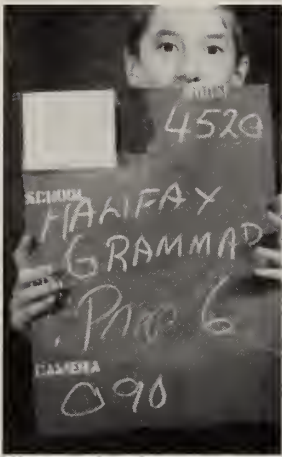 4520
SCHOOL
HALIFAX
GRAMMAR
6
CAMERA
090